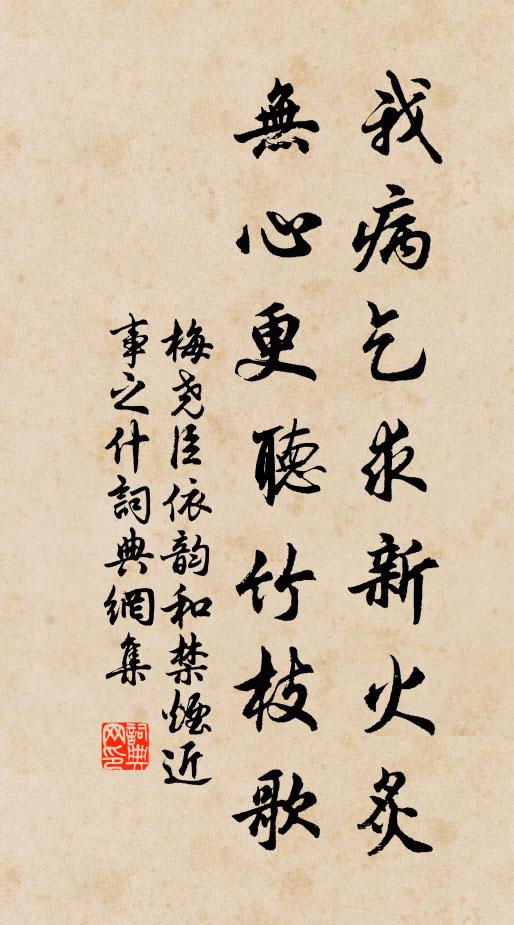 我病乞求新火炙
無心更聽竹枝歌
梅尧臣依韵和禁煙近
事之什詞典網集
詞典网印